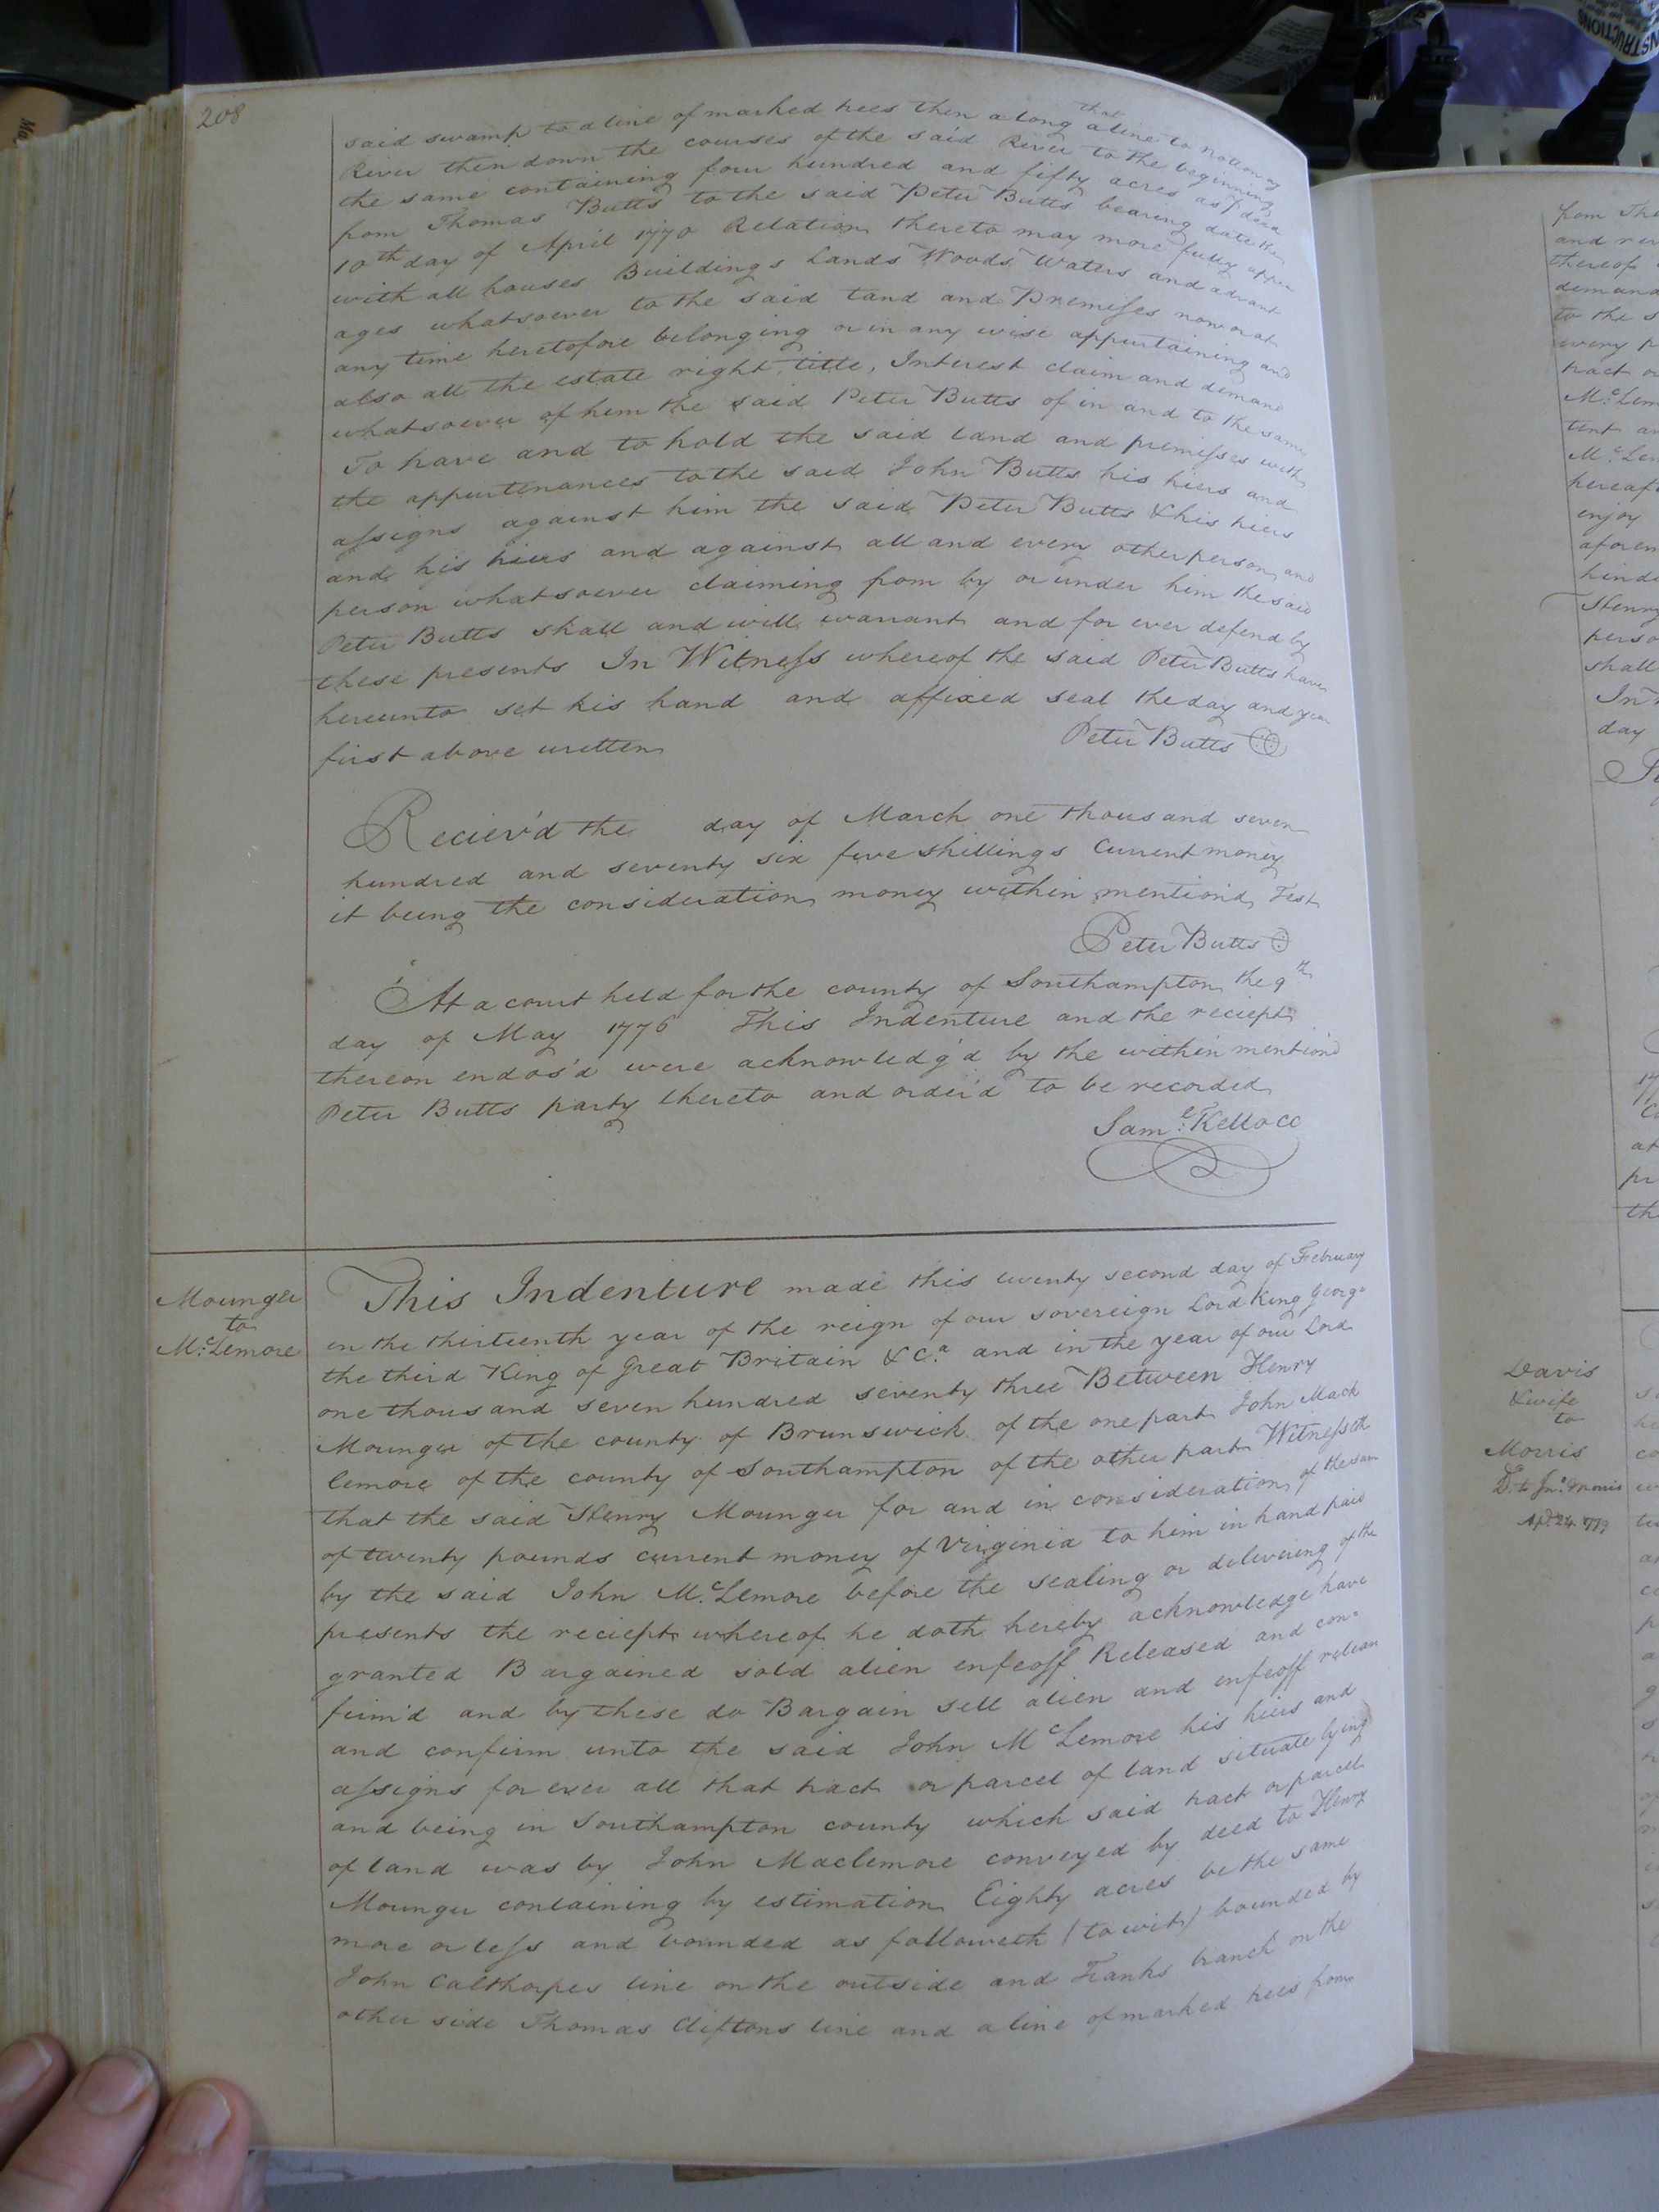 208
said swamp to a line of marked trees then along that a line to Nottoway
River then down the courses of the said River to the beginning
the same containing four hundred and fifty acres as p deed
from Thomas Butts to the said Peter Butts bearing date the
10th day of April 1770 Relation thereto may more fully appear
with all houses Buildings Lands Woods Waters and advant
ages whatsoever to the said land and Premises now or at
any time heretofore belonging or in any wise appurtaining and
also all the estate right, title, Interest claim and demand
whatsoever of him the said Peter Butts of in and to the same
To have and to hold the said land and premisses with
the appurtenances to the said John Butts his hiers and
assigns against him the said Peter Butts & his hiers
and his hiers and against all and every other person and
person whatsoever claiming from by or under him the said
Peter Butts shall and will warrant and for ever defend by
these presents In Witness whereof the said Peter Butts have
hereunto set his hand and affixed seal the day and year
first above written
Peter Butts
Reciev'd the day of March one thousand seven
hundred and seventy six five shillings Current money
it being the consideration money within mention'd Test
Peter Butts
At a court held for the county of Southampton the 9th
day of May 1776 This Indenture and the reciept
thereon endos'd were acknowledg'd by the within mention'd
Peter Butts party thereto and order'd to be recorded
Saml. Kello CC
Mounger
to
Mc.Lemore
This Indenture made this twenty second day of February
in the thirteenth year of the reign of our sovereign Lord King George
the third King of Great Britain &c.a and in the year of our Lord
one thousand seven hundred seventy three Between Henry
Mounger of the county of Brunswick of the one part John Mack
lemore of the county of Southampton of the other part Witnesseth
that the said Henry Mounger for and in consideration of the sum
of twenty pounds current money of Virginia to him in hand paid
by the said John Mc.Lemore before the sealing or delivering of the
presents the reciept whereof he doth hereby acknowledge have
granted Bargained sold alien enfeoff Released and con=
firm'd and by these do Bargain sell alien and enfeoff release
and confirm unto the said John McLemore his hiers and
assigns for ever all that tract or parcel of land situate lying
and being in Southampton county which said tract or parcel
of land was by John Maclemore conveyed by deed to Henry
Mounger containing by estimation Eighty acres be the same
more or less and bounded as followeth (to wit) bounded by
John Calthorpes line on the outside and Franks branch on the
other side Thomas Cliftons line and a line of marked trees from
Davis
& wife
to
Morris
D. to Jno. Morris
Apl. 24. 1779